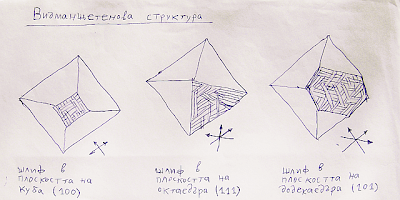 Видманщетенова структура
шлиф в
плоскостта на
куба (100)
шлиф в
плоскостта на
октаедъра (111)
шлиф в
плоскостта на
додекаедъра (101)